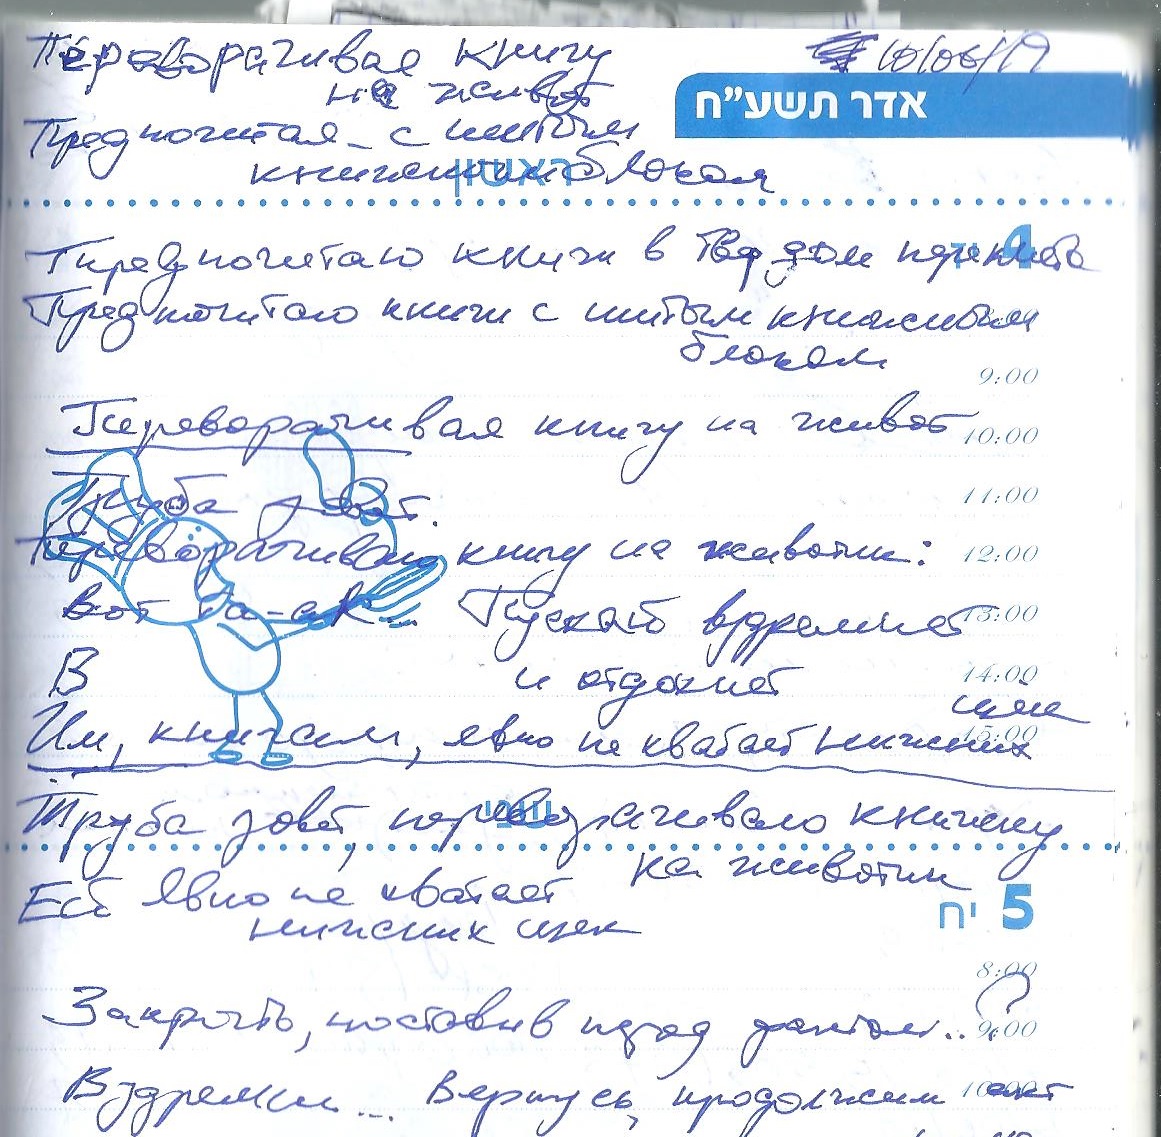 Переворачивая книгу 10/06/19
на живот
אדר תשע"ח
Предпочитая - с шитым
книжным блоком
ראשון
4
Предпочитаю книги в твердом переплете
Предпочитаю книги с шитым книжным
блоком
9:00
Переворачивая книгу на живот 10:00
11:00
Труба зовет.
Переворачиваю книгу на животик: 12:00
вот та-ак... Пускай вздремнет 13:00
В и отдохнет 14:00
щек
Им, книгам, явно не хватает нижних 15:00
שני
Труба зовет, переворачиваю книжку
на животик
Ей явно не хватает
нижних щек
5 יח
8:00
Закрыть, поставив перед фактом..? 9:00
Вздремни... Вернусь, продолжим 10:00